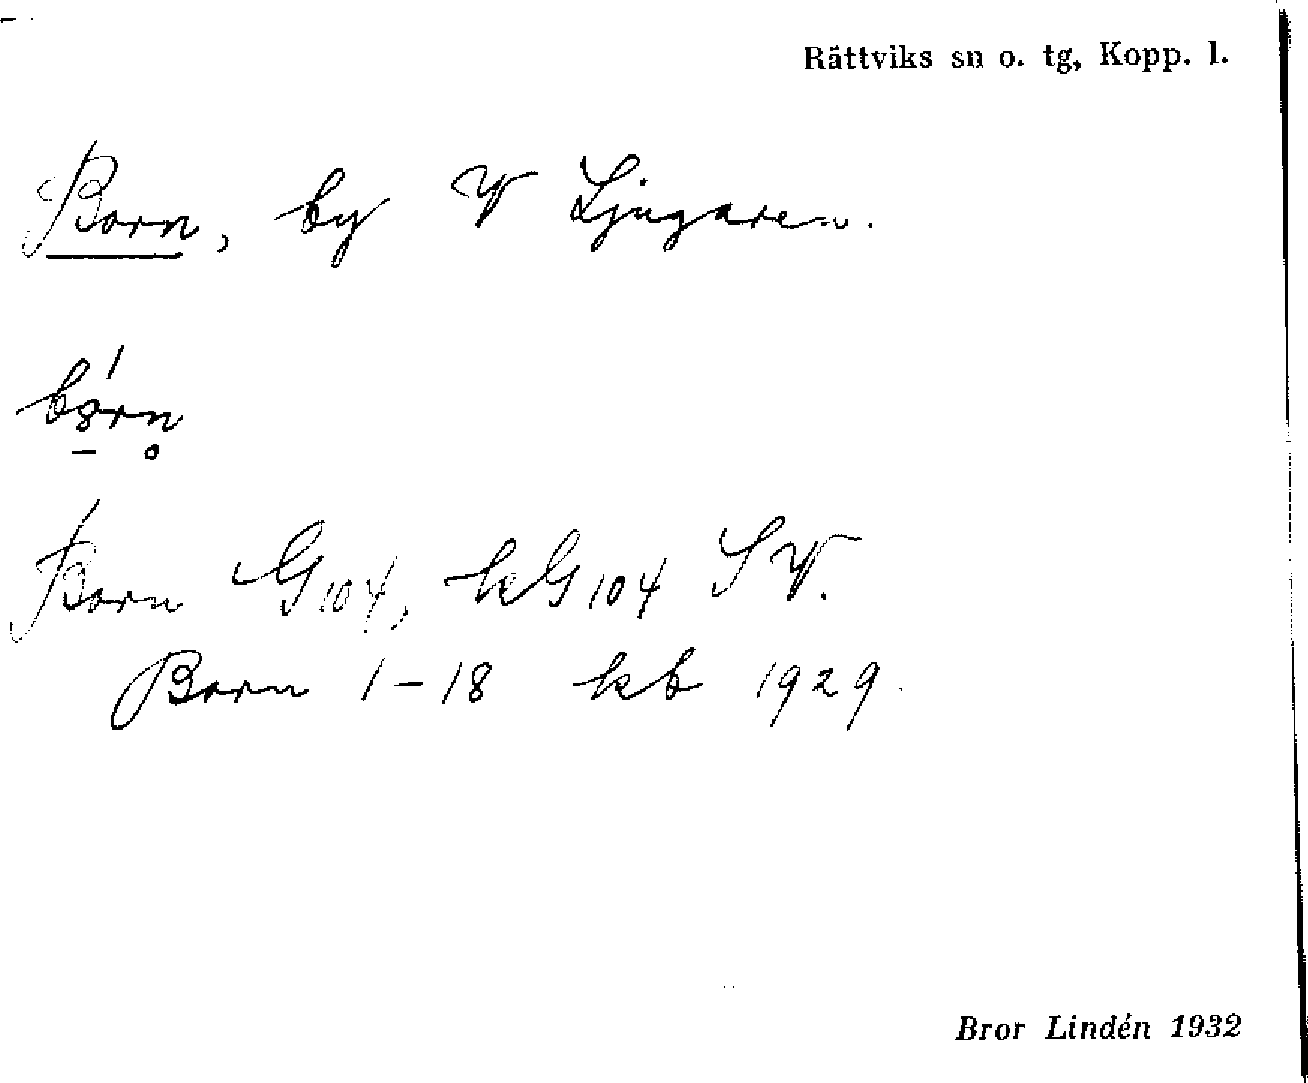 Rättviks sn o. tg, Kopp. l.
Born, by V Ljugaren.
Born G104, kG104 SV.
Born 1-18 kb 1929.
Bror Lindén 1932